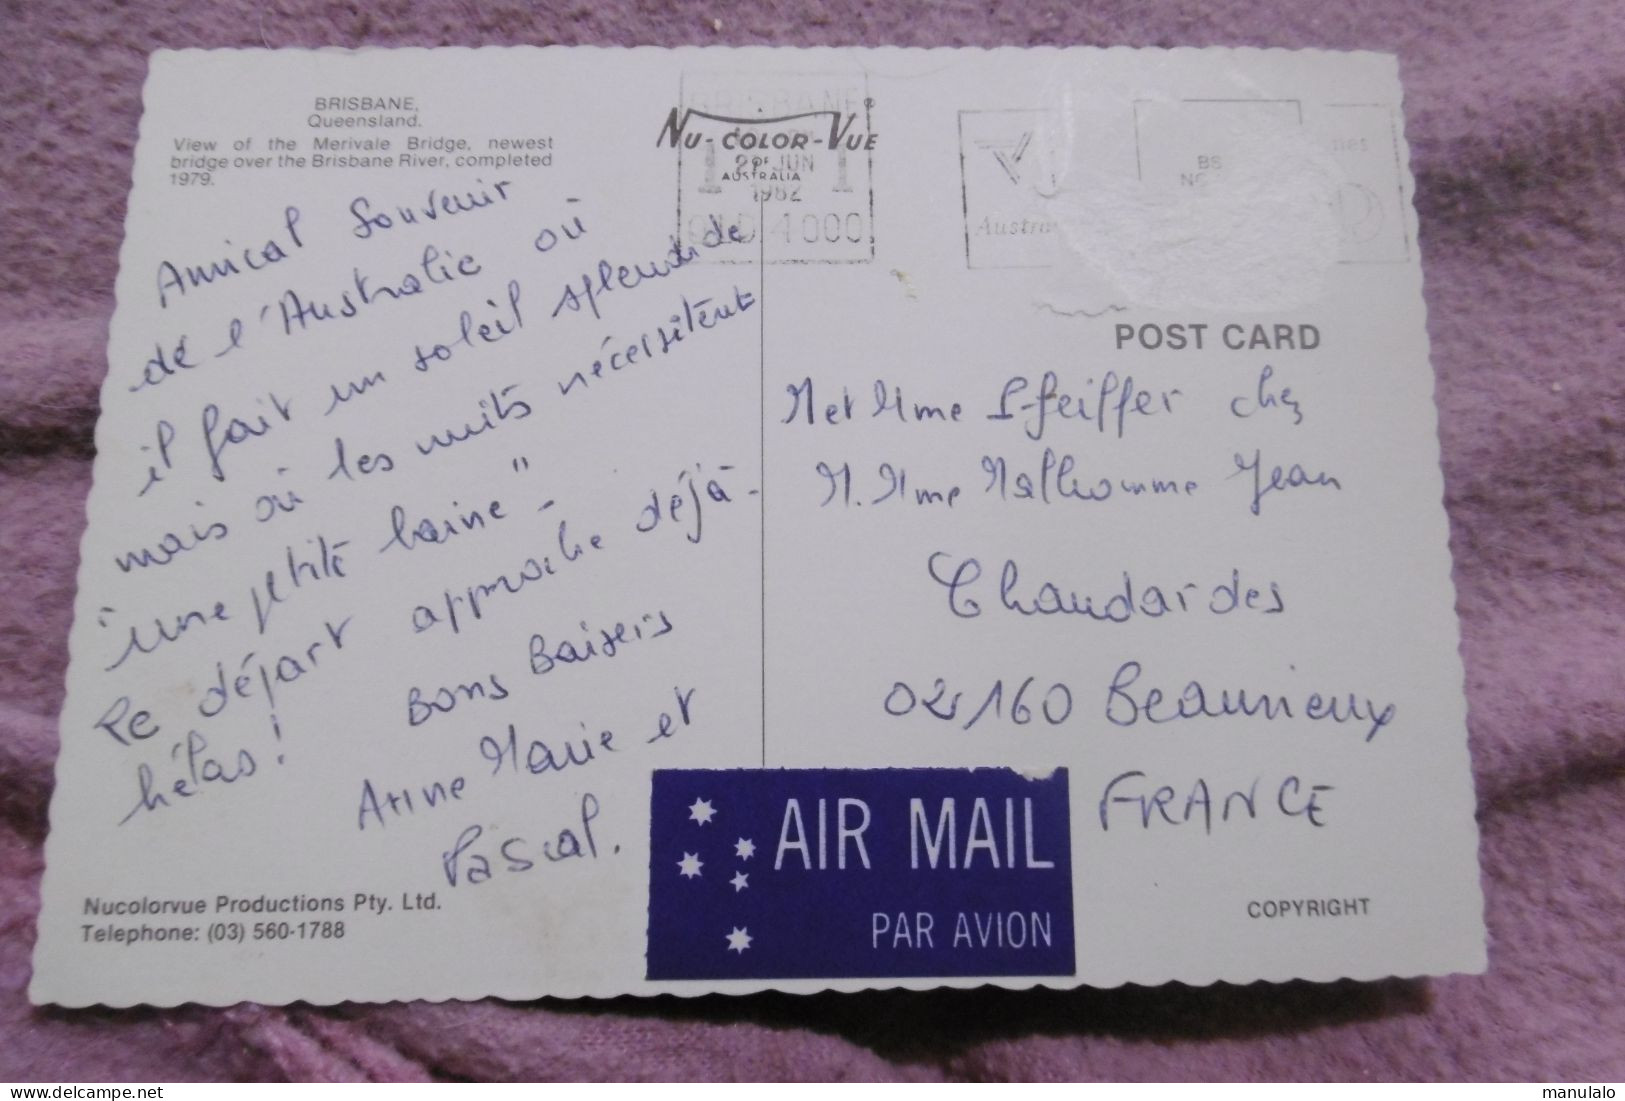 BRISBANE,
Queensland.
View of the Merivale Bridge, newest
bridge over the Brisbane River, completed
1979.
NU-COLOR-VUE®
AUSTRALIA
BRISBANE
JUN
1982
QLD 4000
Austra
BS
Amical Souvenir
de l'Australie où
il fait un soleil splendide
mais où les nuits nécessitent
"une petite laine" -
le départ approche déjà -
hélas!
Bons Baisers
Anne Marie et
Pascal.
Nucolorvue Productions Pty. Ltd.
Telephone: (03) 560-1788
POST CARD
M et Mme Pfeiffer chez
M. Mme Malhomme Jean
Chaudardes
02160 Beaurieux
FRANCE
AIR MAIL
PAR AVION
COPYRIGHT
manulalo